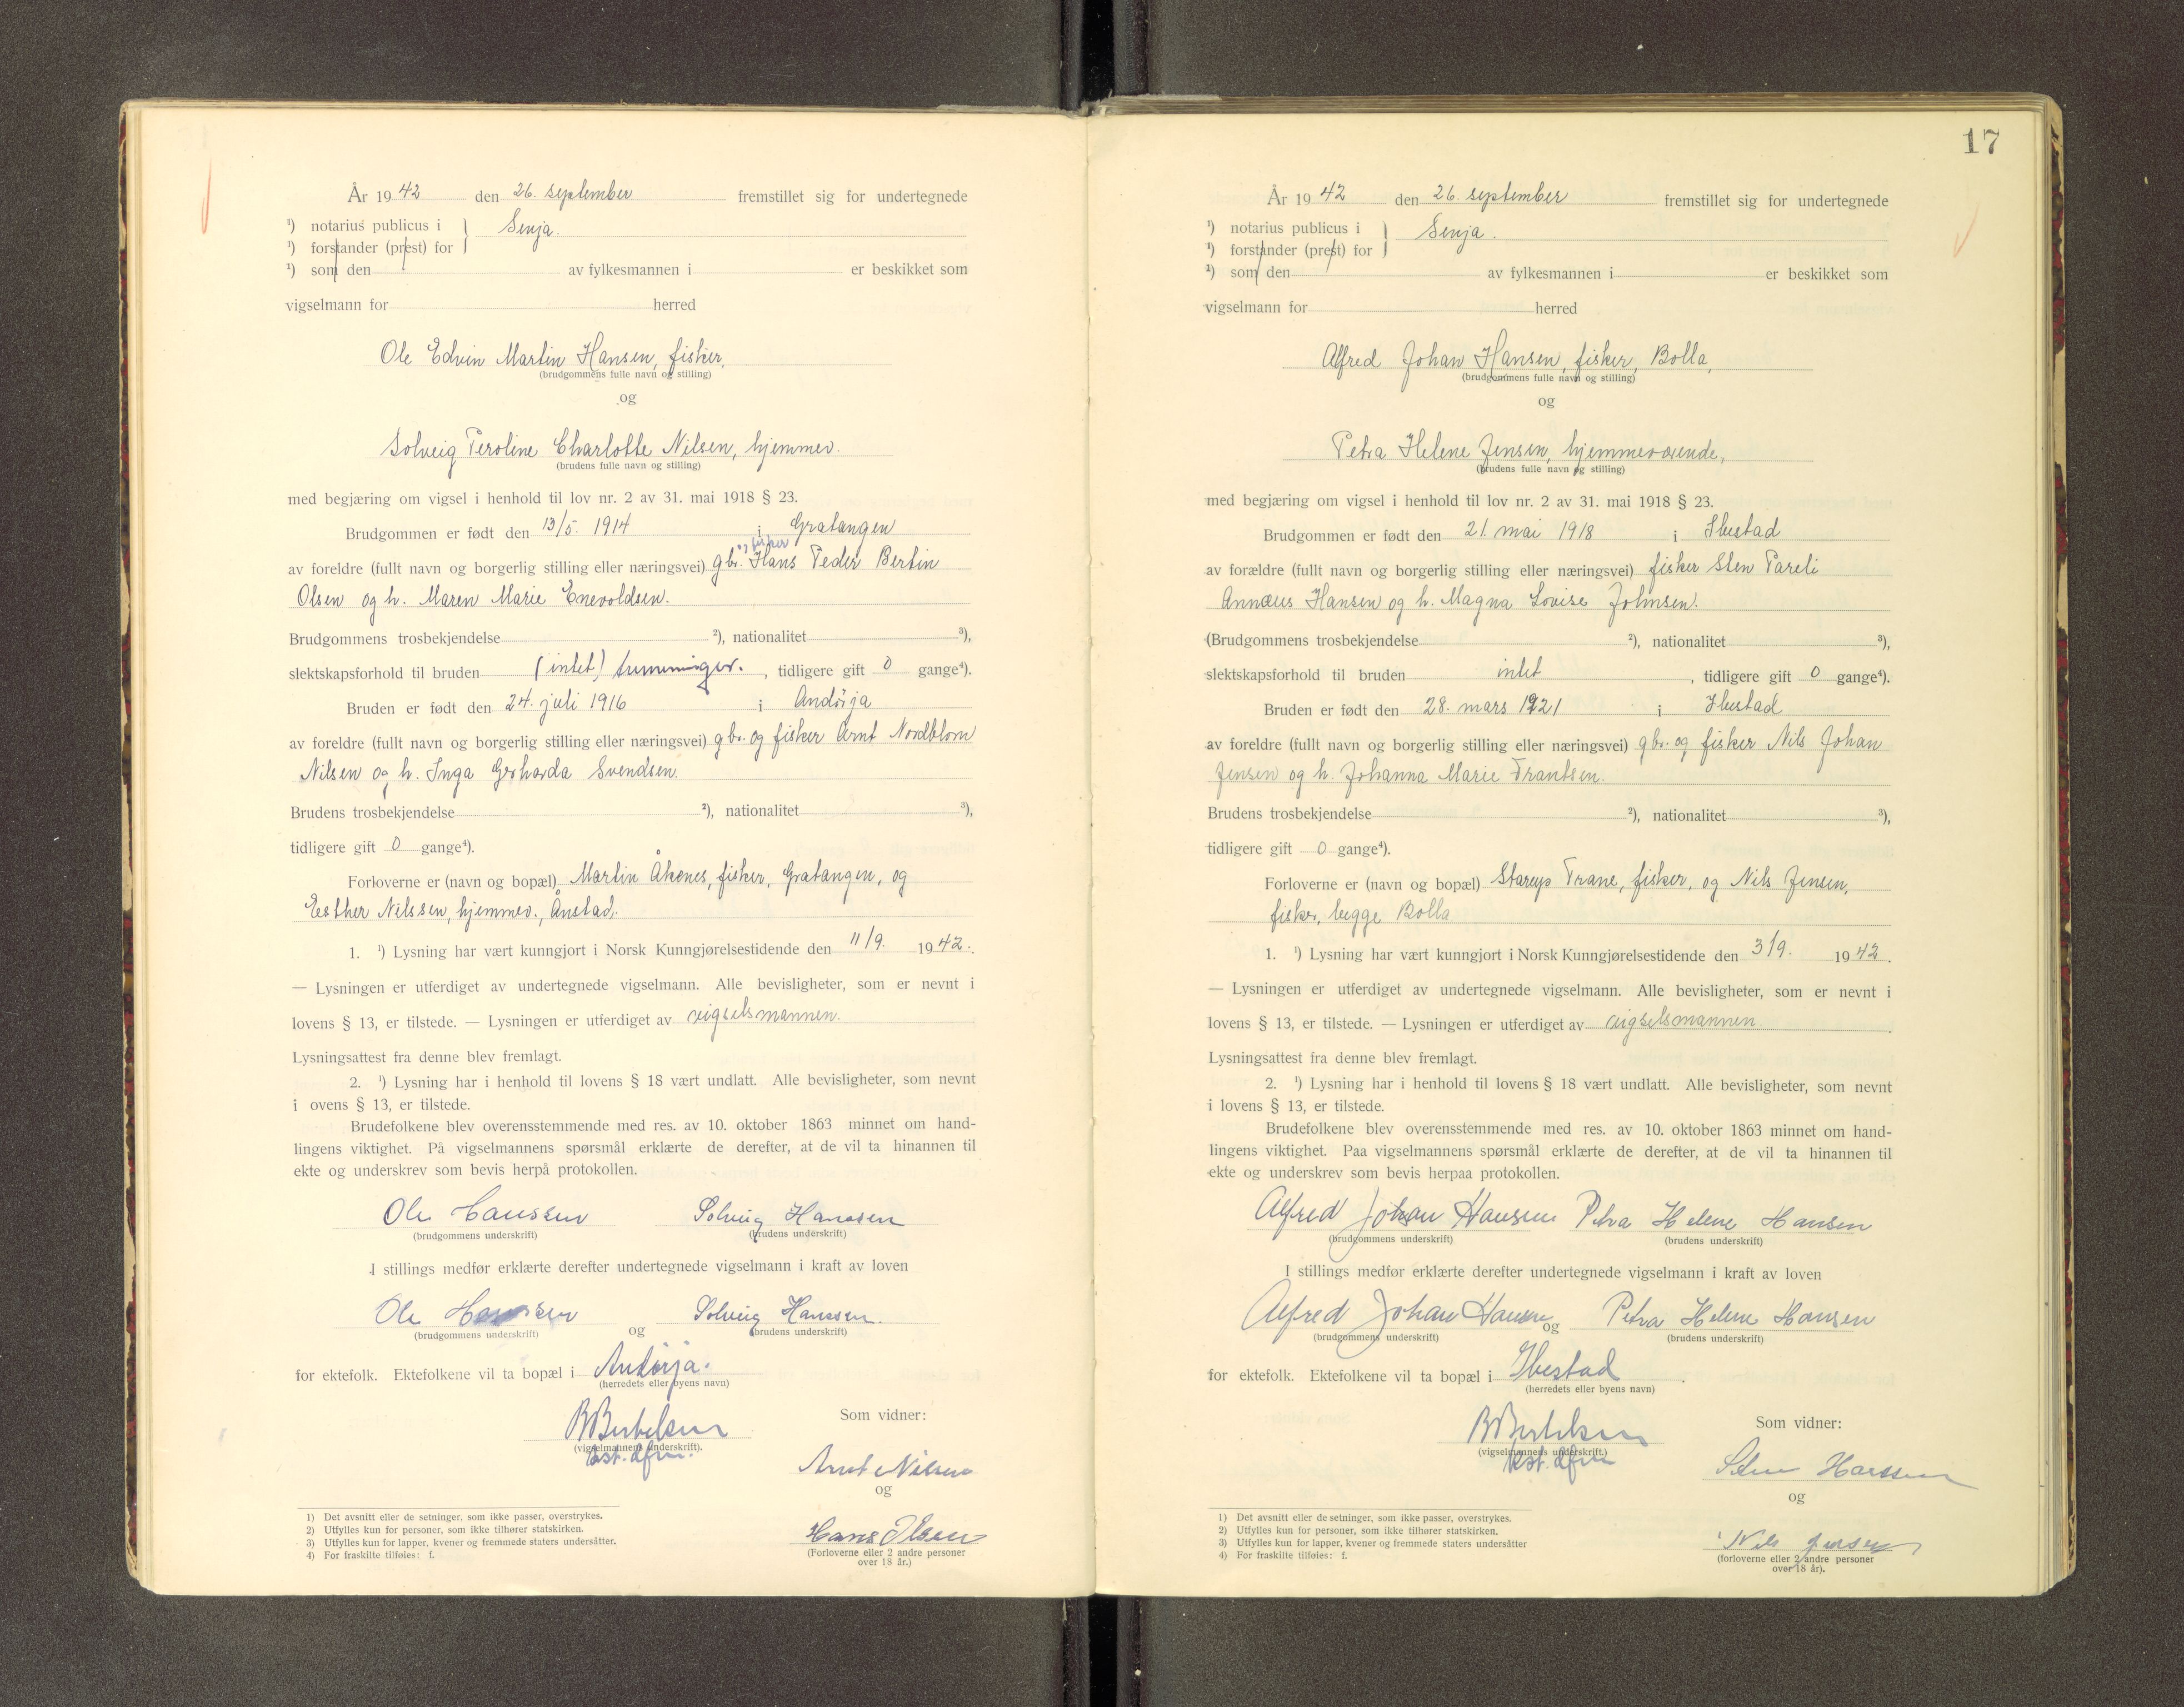 År 1942 den 26. september fremstillet sig for undertegnede
¹) notarius publicus i } Senja.
¹) forstander (prest) for
¹) som den av fylkesmannen i er beskikket som
vigselmann for herred
Ole Edvin Martin Hansen, fisker,
(brudgommens fulle navn og stilling)
og
Solveig Peroline Charlotte Nilsen, hjemmev.
(brudens fulle navn og stilling)
med begjæring om vigsel i henhold til lov nr. 2 av 31. mai 1918 § 23.
Brudgommen er født den 13/5. 1914 i Gratangen
og fisker
av foreldre (fullt navn og borgerlig stilling eller næringsvei) gbr. Hans Peder Bertin
Olsen og h. Maren Marie Enevoldsen.
Brudgommens trosbekjendelse ²), nationalitet ³),
slektskapsforhold til bruden (intet) tremenninger. , tidligere gift 0 gange⁴).
Bruden er født den 24. juli 1916 i Andörja
av foreldre (fullt navn og borgerlig stilling eller næringsvei) gbr. og fisker Arnt Nordblom
Nilsen og h. Inga Gerharda Svendsen.
Brudens trosbekjendelse ²), nationalitet ³),
tidligere gift 0 gange⁴).
Forloverne er (navn og bopæl) Martin Åkenes, fisker, Gratangen, og
Esther Nilssen, hjemmev., Ånstad.
1. ¹) Lysning har vært kunngjort i Norsk Kunngjørelsestidende den 11/9. 1942.
— Lysningen er utferdiget av undertegnede vigselmann. Alle bevisligheter, som er nevnt i
lovens § 13, er tilstede. — Lysningen er utferdiget av vigselsmannen.
Lysningsattest fra denne blev fremlagt.
2. ¹) Lysning har i henhold til lovens § 18 vært undlatt. Alle bevisligheter, som nevnt
i ovens § 13, er tilstede.
Brudefolkene blev overensstemmende med res. av 10. oktober 1863 minnet om hand-
lingens viktighet. På vigselmannens spørsmål erklærte de derefter, at de vil ta hinannen til
ekte og underskrev som bevis herpå protokollen.
Ole Hanssen Solveig Hanssen
(brudgommens underskrift) (brudens underskrift)
I stillings medfør erklærte derefter undertegnede vigselmann i kraft av loven
Ole Hanssen og Solveig Hanssen.
(brudgommens underskrift) (brudens underskrift)
for ektefolk. Ektefolkene vil ta bopæl i Andörja.
(herredets eller byens navn)
B Bertelsen
(vigselmannens underskrift).
kst. dfm.
Som vidner:
Arnt Nilsen
og
Hans Olsen
(Forloverne eller 2 andre personer
over 18 år.)
1) Det avsnitt eller de setninger, som ikke passer, overstrykes.
2) Utfylles kun for personer, som ikke tilhører statskirken.
3) Utfylles kun for lapper, kvener og fremmede staters undersåtter.
4) For fraskilte tilføies: f.
17
År 1942 den 26. september fremstillet sig for undertegnede
¹) notarius publicus i } Senja.
¹) forstander (prest) for
¹) som den av fylkesmannen i er beskikket som
vigselmann for herred
Alfred Johan Hansen, fisker, Bolla,
(brudgommens fulle navn og stilling)
og
Petra Helene Jensen, hjemmeværende,
(brudens fulle navn og stilling)
med begjæring om vigsel i henhold til lov nr. 2 av 31. mai 1918 § 23.
Brudgommen er født den 21. mai 1918 i Ibestad
av forældre (fullt navn og borgerlig stilling eller næringsvei) fisker Sten Pareli
Annæus Hansen og h. Magna Lovise Johnsen.
(Brudgommens trosbekjendelse ²), nationalitet ³),
slektskapsforhold til bruden intet , tidligere gift 0 gange⁴).
Bruden er født den 28. mars 1921 i Ibestad
av foreldre (fullt navn og borgerlig stilling eller næringsvei) gbr. og fisker Nils Johan
Jensen og h. Johanna Marie Frantsen.
Brudens trosbekjendelse ²), nationalitet ³),
tidligere gift 0 gange⁴).
Forloverne er (navn og bopæl) Trane, fisker, og Nils Jensen,
fisker, begge Bolla
1. ¹) Lysning har vært kunngjort i Norsk Kunngjørelsestidende den 3/9. 1942.
— Lysningen er utferdiget av undertegnede vigselmann. Alle bevisligheter, som er nevnt i
lovens § 13, er tilstede. — Lysningen er utferdiget av vigselsmannen.
Lysningsattest fra denne blev fremlagt.
2. ¹) Lysning har i henhold til lovens § 18 vært undlatt. Alle bevisligheter, som nevnt
i lovens § 13, er tilstede.
Brudefolkene blev overensstemmende med res. av 10. oktober 1863 minnet om hand-
lingens viktighet. Paa vigselmannens spørsmål erklærte de derefter, at de vil ta hinannen til
ekte og underskrev som bevis herpaa protokollen.
Alfred Johan Hansen Petra Helene Hansen
(brudgommens underskrift) (brudens underskrift)
I stillings medfør erklærte derefter undertegnede vigselmann i kraft av loven
Alfred Johan Hansen og Petra Helene Hansen
(brudgommens underskrift) (brudens underskrift)
for ektefolk. Ektefolkene vil ta bopæl i Ibestad.
(herredets eller byens navn)
B Bertelsen
(vigselmannens underskrift.)
kst. dfm
Som vidner:
Sten Hanssen
og
Nils Jensen
(forloverne eller 2 andre personer
over 18 år).
1) Det avsnitt eller de setninger, som ikke passer, overstrykes.
2) Utfylles kun for personer, som ikke tilhører statskirken.
3) Utfylles kun for lapper, kvener og fremmede staters undersåtter
4) For fraskilte tilføies: f.